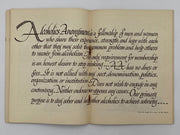 Alcoholics Anonymous is a fellowship of men and women
who share their experience, strength and hope with each
other that they may solve their common problem and help others
to recover from alcoholism. The only requirement for membership
is an honest desire to stop drinking. AA has no dues or
fees. It is not allied with any sect, denomination, politics,
organization or institution; does not wish to engage in any
controversy. Neither endorses nor opposes any causes. Our primary
purpose is to stay sober and help other alcoholics to achieve sobriety.